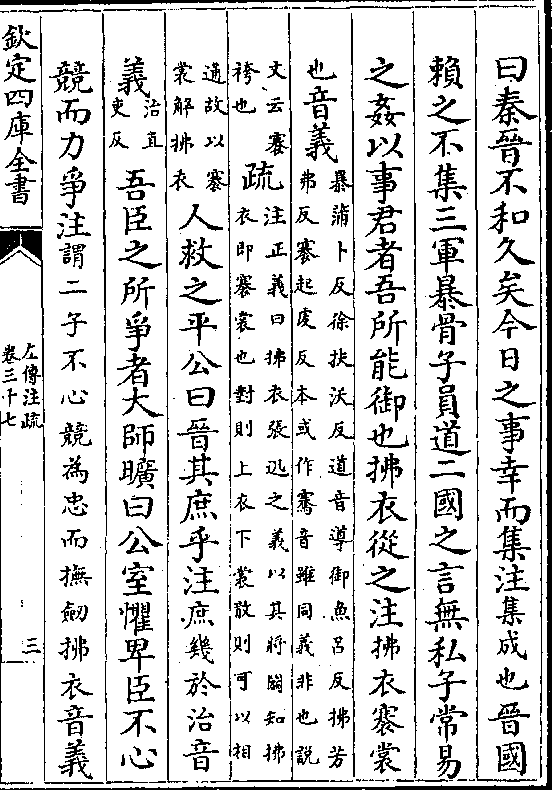 曰秦晉不和久矣今日之事幸而集注集成也晉國
賴之不集三軍暴骨子員道二國之言無私子常易
之姦以事君者吾所能御也拂衣從之注拂衣褰裳
也音義暴蒲卜反徐扶沃反道音導御魚呂反拂芳
弗反褰起虔反本或作騫音雖同義非也說
文云褰
袴也疏注正義曰拂衣張迅之義以其將鬭知拂
衣即褰裳也對則上衣下裳散則可以相
通故以褰
裳解拂衣人救之平公曰晉其庶乎注庶幾於治音
義治直
吏反吾臣之所爭者大師曠曰公室懼卑臣不心
競而力爭注謂二子不心競為忠而撫劒拂衣音義
欽定四庫全書
左傳注疏
卷三十七
三